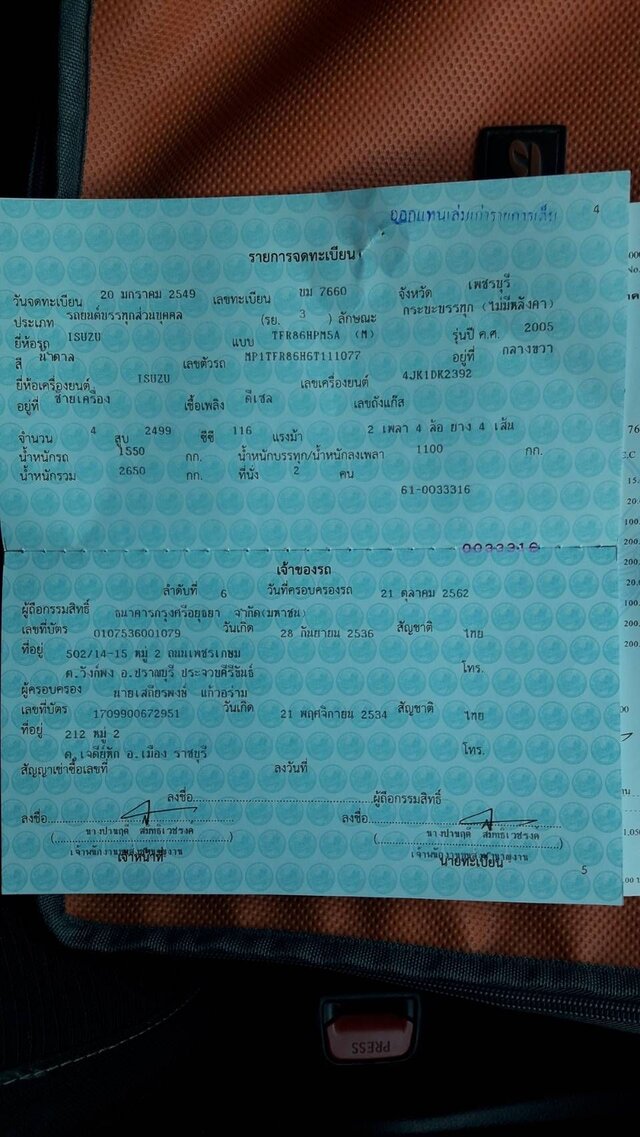 ออกแทนเล่มเก่ารายการเต็ม
4
รายการจดทะเบียน
วันจดทะเบียน 20 มกราคม 2549 เลขทะเบียน ขม 7660 จังหวัด เพชรบุรี
ประเภท รถยนต์บรรทุกส่วนบุคคล (รย. 3 ) ลักษณะ กระบะบรรทุก (ไม่มีหลังคา)
ยี่ห้อรถ ISUZU แบบ TFR86HPM5A (M) รุ่นปี ค.ศ. 2005
สี น้ำตาล เลขตัวรถ MP1TFR86H6T111077 อยู่ที่ กลางขวา
ยี่ห้อเครื่องยนต์ ISUZU เลขเครื่องยนต์ 4JK1DK2392
อยู่ที่ ซ้ายเครื่อง เชื้อเพลิง ดีเซล เลขถังแก๊ส
จำนวน 4 สูบ 2499 ซีซี 116 แรงม้า 2 เพลา 4 ล้อ ยาง 4 เส้น
น้ำหนักรถ 1550 กก. น้ำหนักบรรทุก/น้ำหนักลงเพลา 1100 กก.
น้ำหนักรวม 2650 กก. ที่นั่ง 2 คน
61-0033316
0033316
เจ้าของรถ
ลำดับที่ 6 วันที่ครอบครองรถ 21 ตุลาคม 2562
ผู้ถือกรรมสิทธิ์ ธนาคารกรุงศรีอยุธยา จำกัด(มหาชน)
เลขที่บัตร 0107536001079 วันเกิด 28 กันยายน 2536 สัญชาติ ไทย
ที่อยู่ 502/14-15 หมู่ 2 ถนนเพชรเกษม
ต.วังก์พง อ.ปราณบุรี ประจวบคีรีขันธ์ โทร.
ผู้ครอบครอง นายเสถียรพงษ์ แก้วอร่าม
เลขที่บัตร 1709900672951 วันเกิด 21 พฤศจิกายน 2534 สัญชาติ ไทย
ที่อยู่ 212 หมู่ 2
ต.เจดีย์หัก อ.เมือง ราชบุรี โทร.
สัญญาเช่าซื้อเลขที่ ลงวันที่
ลงชื่อ ผู้ถือกรรมสิทธิ์
ลงชื่อ ลงชื่อ
เจ้าหน้าที่ นายทะเบียน
5
PRESS